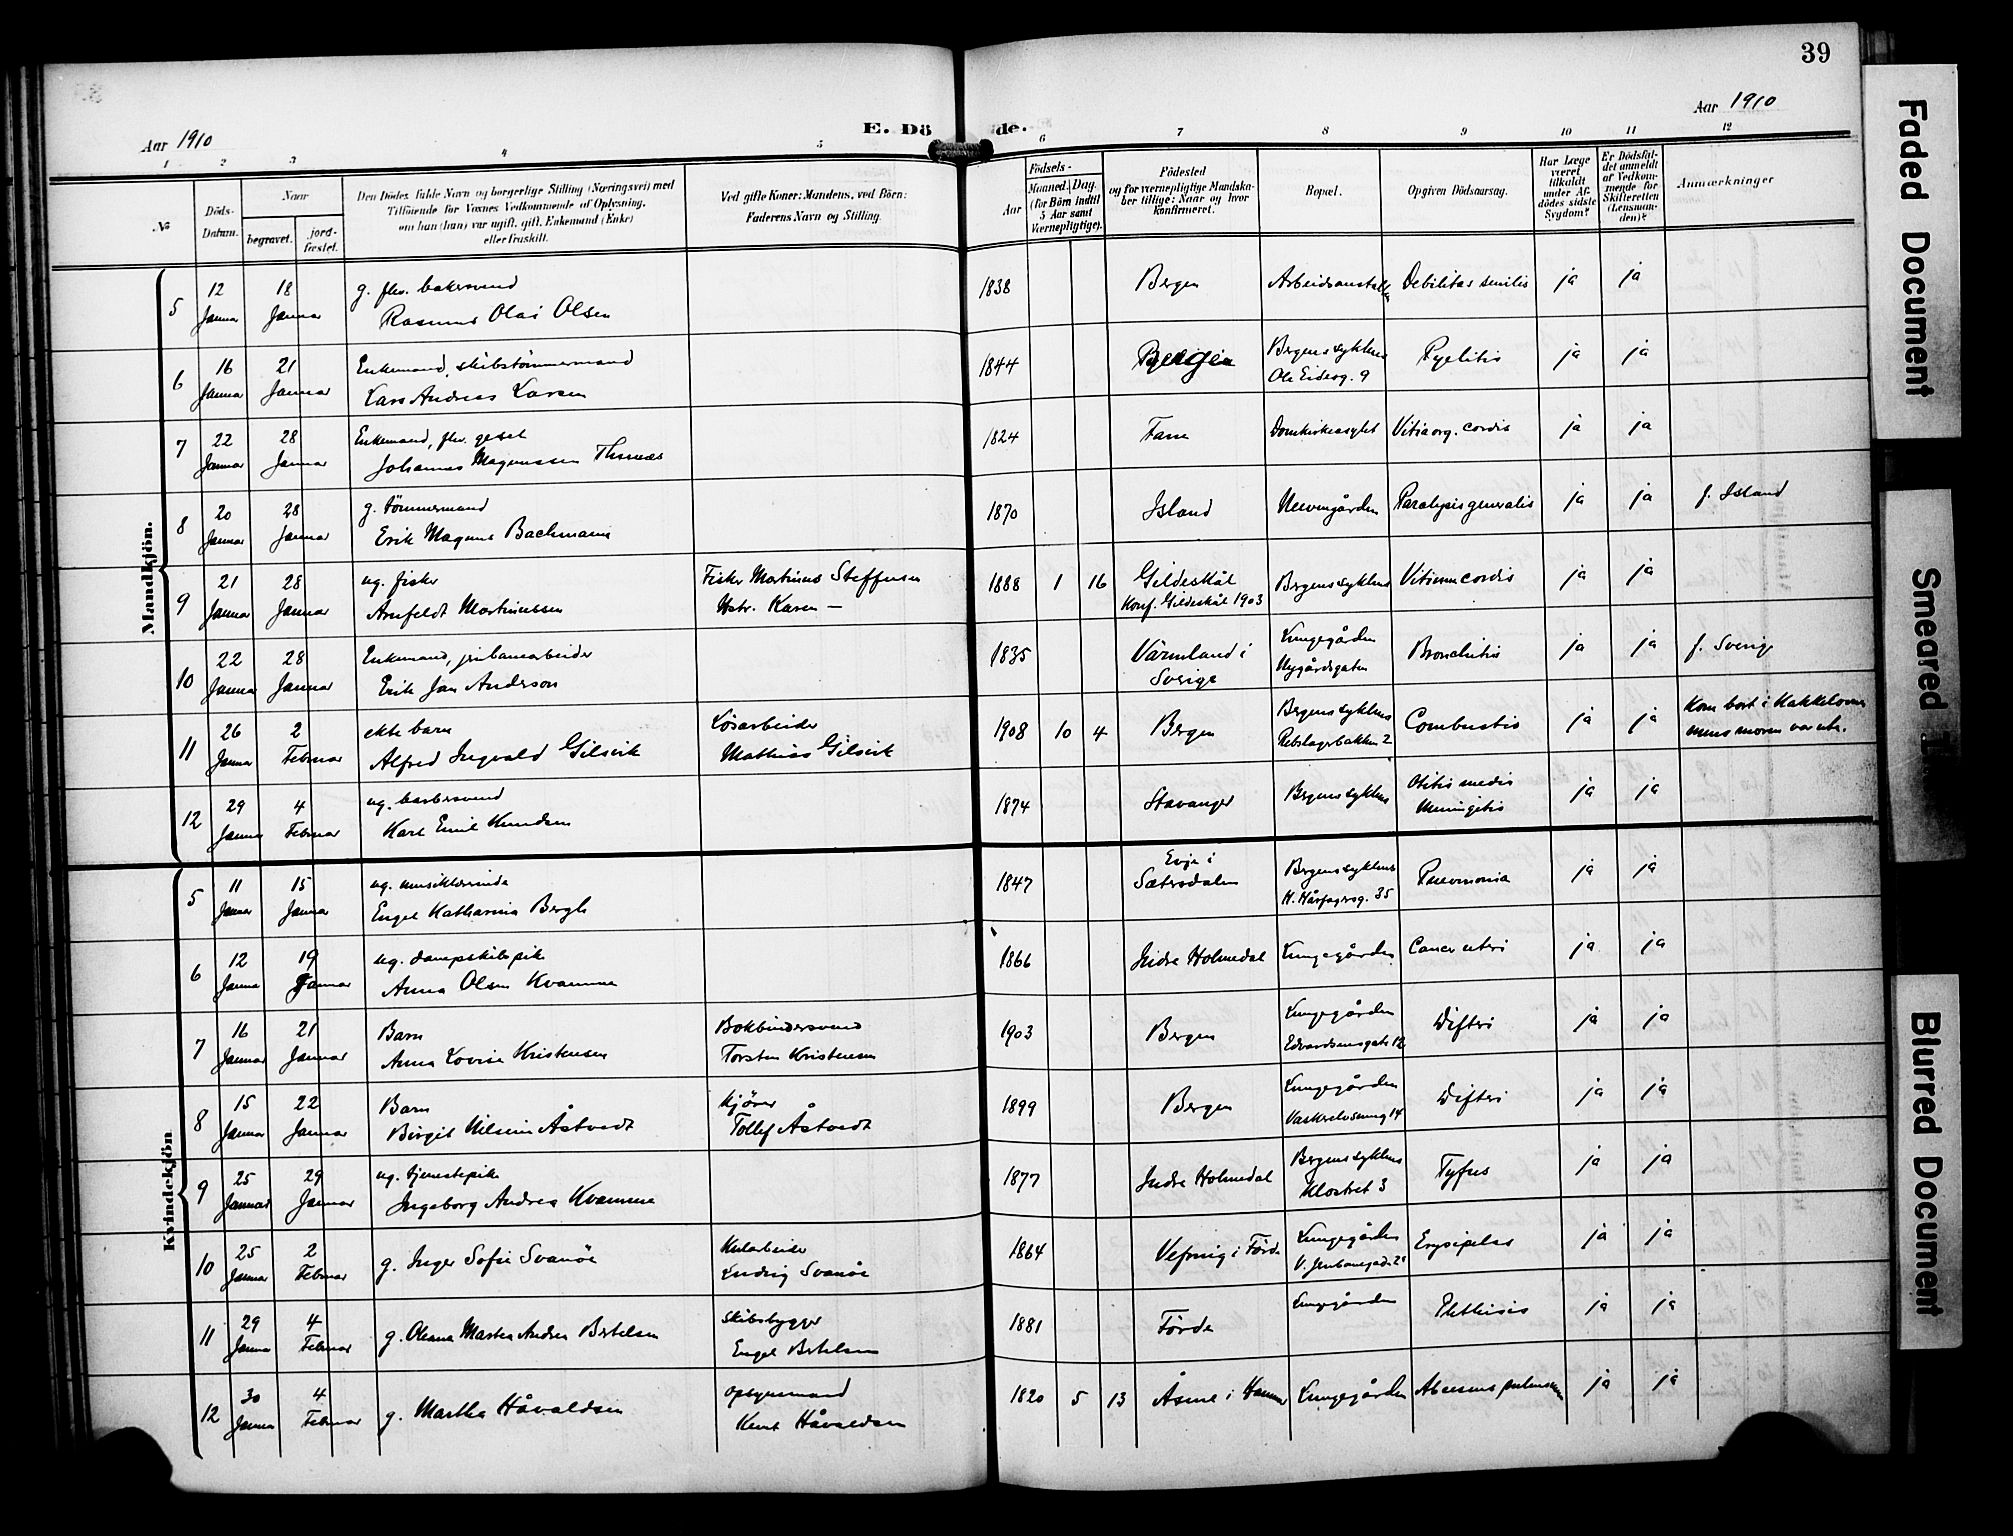 39
Aar 1910
E. Döde.
Aar 1910
1 2 3 4 5 6 7 8 9 10 11 12
№
Döds-Datum.
Naar
begravet.
jord-fæstet.
Den Dödes fulde Navn og borgerlige Stilling (Næringsvei) med
Tilföiende for Voxnes Vedkommende af Oplysning,
om han (hun) var ugift, gift, Enkemand (Enke)
eller fraskilt.
Ved gifte Koner: Mandens, ved Börn:
Faderens Navn og Stilling.
Födsels-
Aar
Maaned. Dag.
(for Börn indtil
5 Aar samt
Værnepligtige).
Födested
og for værnepligtige Mandska-
ber tillige: Naar og hvor
konfirmeret.
Bopæl.
Opgiven Dödsaarsag.
Har Læge
været
tilkaldt
under Af-
dödes sidste
Sygdom?
Er Dödsfal-
det anmeldt
af Vedkom-
mende for
Skifteretten
(Lensman-
den)?
Anmærkninger
Mandkjön.
5 12 Januar 18 Januar g. flv. bakersvend
Rasmus Olai Olsen 1838 Bergen Arbeidsanstalten Debilitas senilis ja ja
6 16 Januar 21 Januar Enkemand, skibstömmermand
Lars Andreas Larsen 1844 Bergen Bergens sykehus
Ole Eidesg. 9 Pyelitis ja ja
7 22 Januar 28 Januar Enkemand, flv. gesel
Johannes Magnussen 1824 Fane Domkirkeasylet Vitia org. cordis ja ja
8 20 Januar 28 Januar g. tömmermand
Erik Magnus Bachmann 1870 Island Neevengården Paralysis generalis ja ja f. Island
9 21 Januar 28 Januar ug. fisker
Arnfeldt Martinussen Fisker Martinus Steffensen
Hstr. Karen — 1888 1 16 Gildeskål
Konf. Gildeskål 1903 Bergens sykehus Vitium cordis ja ja
10 22 Januar 28 Januar Enkemand, jernbanearbeider
Erik Jan Anderson 1835 Värmland i
Sverige Lungegården
Nygårdsgaten Bronchitis ja ja f. Sverige
11 26 Januar 2 Februar ekte barn
Alfred Ingvald Gilsvik Løsarbeider
Mathias Gilsvik 1908 10 4 Bergen Bergens sykehus
Rebslagerbakken 2 Combustio ja ja Kom bort i Kakkelovnen
mens moren var ute.
12 29 Januar 4 Februar ug. barbersvend
Karl Emil Knudsen 1874 Stavanger Bergens sykehus Otitis media
Meningitis ja ja
Kvindekjön
5 11 Januar 15 Januar ug. musiklærerinde
Engel Katharina Bergh 1847 Evje i
Sætersdalen Bergens sykehus
H. Hårfagresg. 35 Pneumonia ja ja
6 12 Januar 19 Januar ug. dampskibspike
Anna Olsen Kvamme 1866 Indre Holmedal Lungegården Cancer uteri ja ja
7 16 Januar 21 Januar Barn
Anna Lovise Kristensen Bokbindersvend
Torsten Kristensen 1903 Bergen Lungegården
Edvardsensgate 12 Difteri ja ja
8 15 Januar 22 Januar Barn
Birgit Nilsine Åstvedt Kjører
Tollef Åstvedt 1899 Bergen Lungegården
Vaskerelvsmug 14 Difteri ja ja
9 25 Januar 29 Januar ug. tjenestepike
Ingeborg Andrea Kvamme 1877 Indre Holmedal Bergens sykehus
Klostret 3 Tyfus ja ja
10 25 Januar 2 Februar g. Inger Sofie Svanøe Kularbeider
Ludvig Svanøe 1864 Vefring i Förde Lungegården
V. Jernbanegade 21 Erysipelas ja ja
11 29 Januar 4 Februar g. Oleana Martha Andrea Bertelsen skibsbygger
Engel Bertelsen 1881 Förde Lungegården Phthisis ja ja
12 30 Januar 4 Februar g. Martha Håvaldsen opsynsmand
Knut Håvaldsen 1820 5 13 Åsane i Hammer Lungegården Abcessus pulmonum ja ja
Faded Document
Smeared
Blurred Document